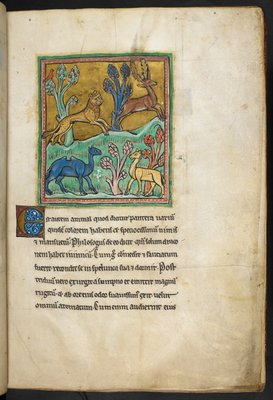 Est autem animal quod dicitur pantera variū
quidē colorem habens & speciosissimū nimis
& mansuetū. Phisiologus de eo dicit. qm̄ solum draco
nem habet inimicū. Cum ḡ comederit & saturatum
fuerit recondit se in spelunca sua & dormit. Post
triduum uero exurgit a sompno & emittit magnū
rugitū. & ab ore eius odor suauissimus exit uelut
omnium aromatum. Cum enim audierint eius